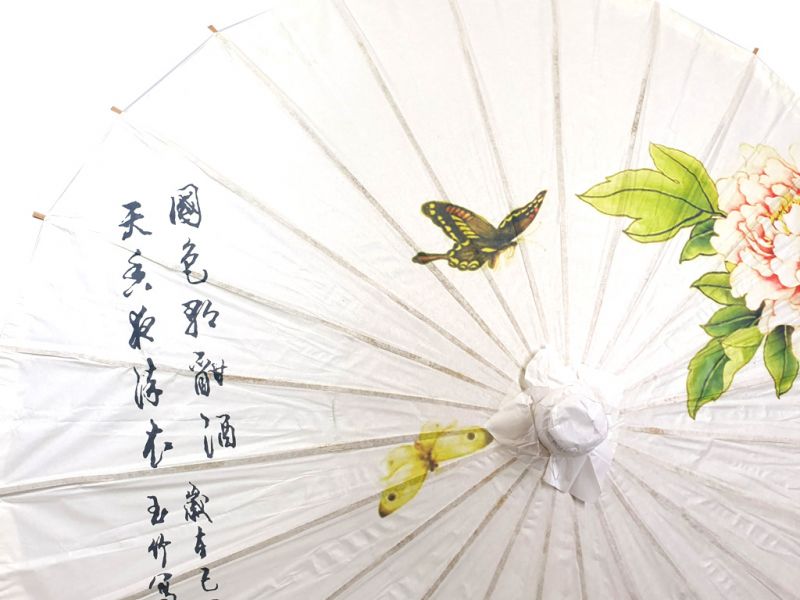 國色朝酣酒
天香夜染衣
歲在己
玉竹寫